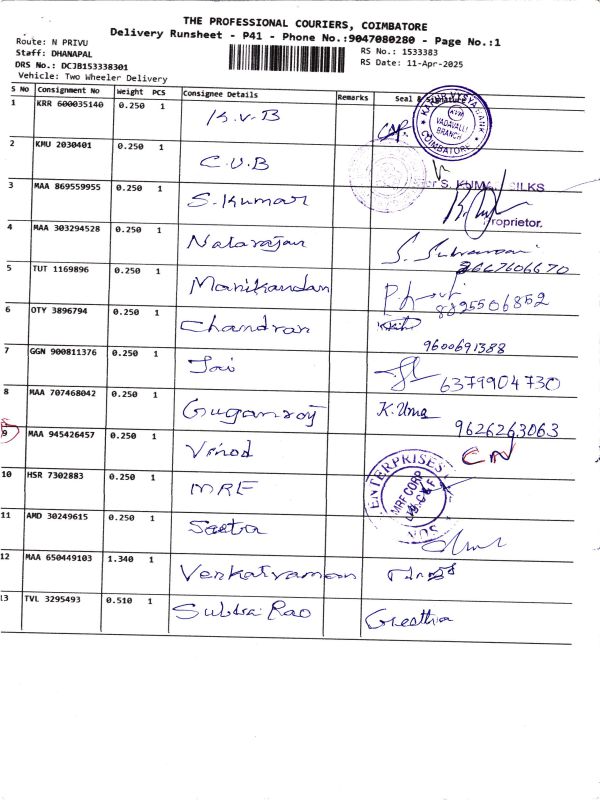 THE PROFESSIONAL COURIERS, COIMBATORE
Delivery Runsheet - P41 - Phone No.:9047080280 - Page No.:1
Route: N PRIVU
Staff: DHANAPAL
DRS No.: DCJB153338301
Vehicle: Two Wheeler Delivery
RS No.: 1533383
RS Date: 11-Apr-2025
S No Consignment No Weight PCS Consignee Details Remarks Seal & Signature
1 KRR 600035140 0.250 1 K.V.B
KARUR VYSYA BANK
KVB
VADAVALLI
BRANCH
COIMBATORE
2 KMU 2030401 0.250 1 C.U.B
3 MAA 869559955 0.250 1 S.Kumar
S. KUMAR SILKS
Proprietor.
4 MAA 303294528 0.250 1 Natarajan
5 TUT 1169896 0.250 1 Manikandan
8825506852
6 OTY 3896794 0.250 1 Chandran
9600691388
7 GGN 900811376 0.250 1 Jai
6379904730
8 MAA 707468042 0.250 1 Guganroj K.Uma
9626263063
9 MAA 945426457 0.250 1 Vinod CN
10 HSR 7302883 0.250 1 MRE
ENTERPRISES
MRF CORP
11 AMD 30249615 0.250 1
12 MAA 650449103 1.340 1 Venkatraman
13 TVL 3295493 0.510 1 Subba Rao